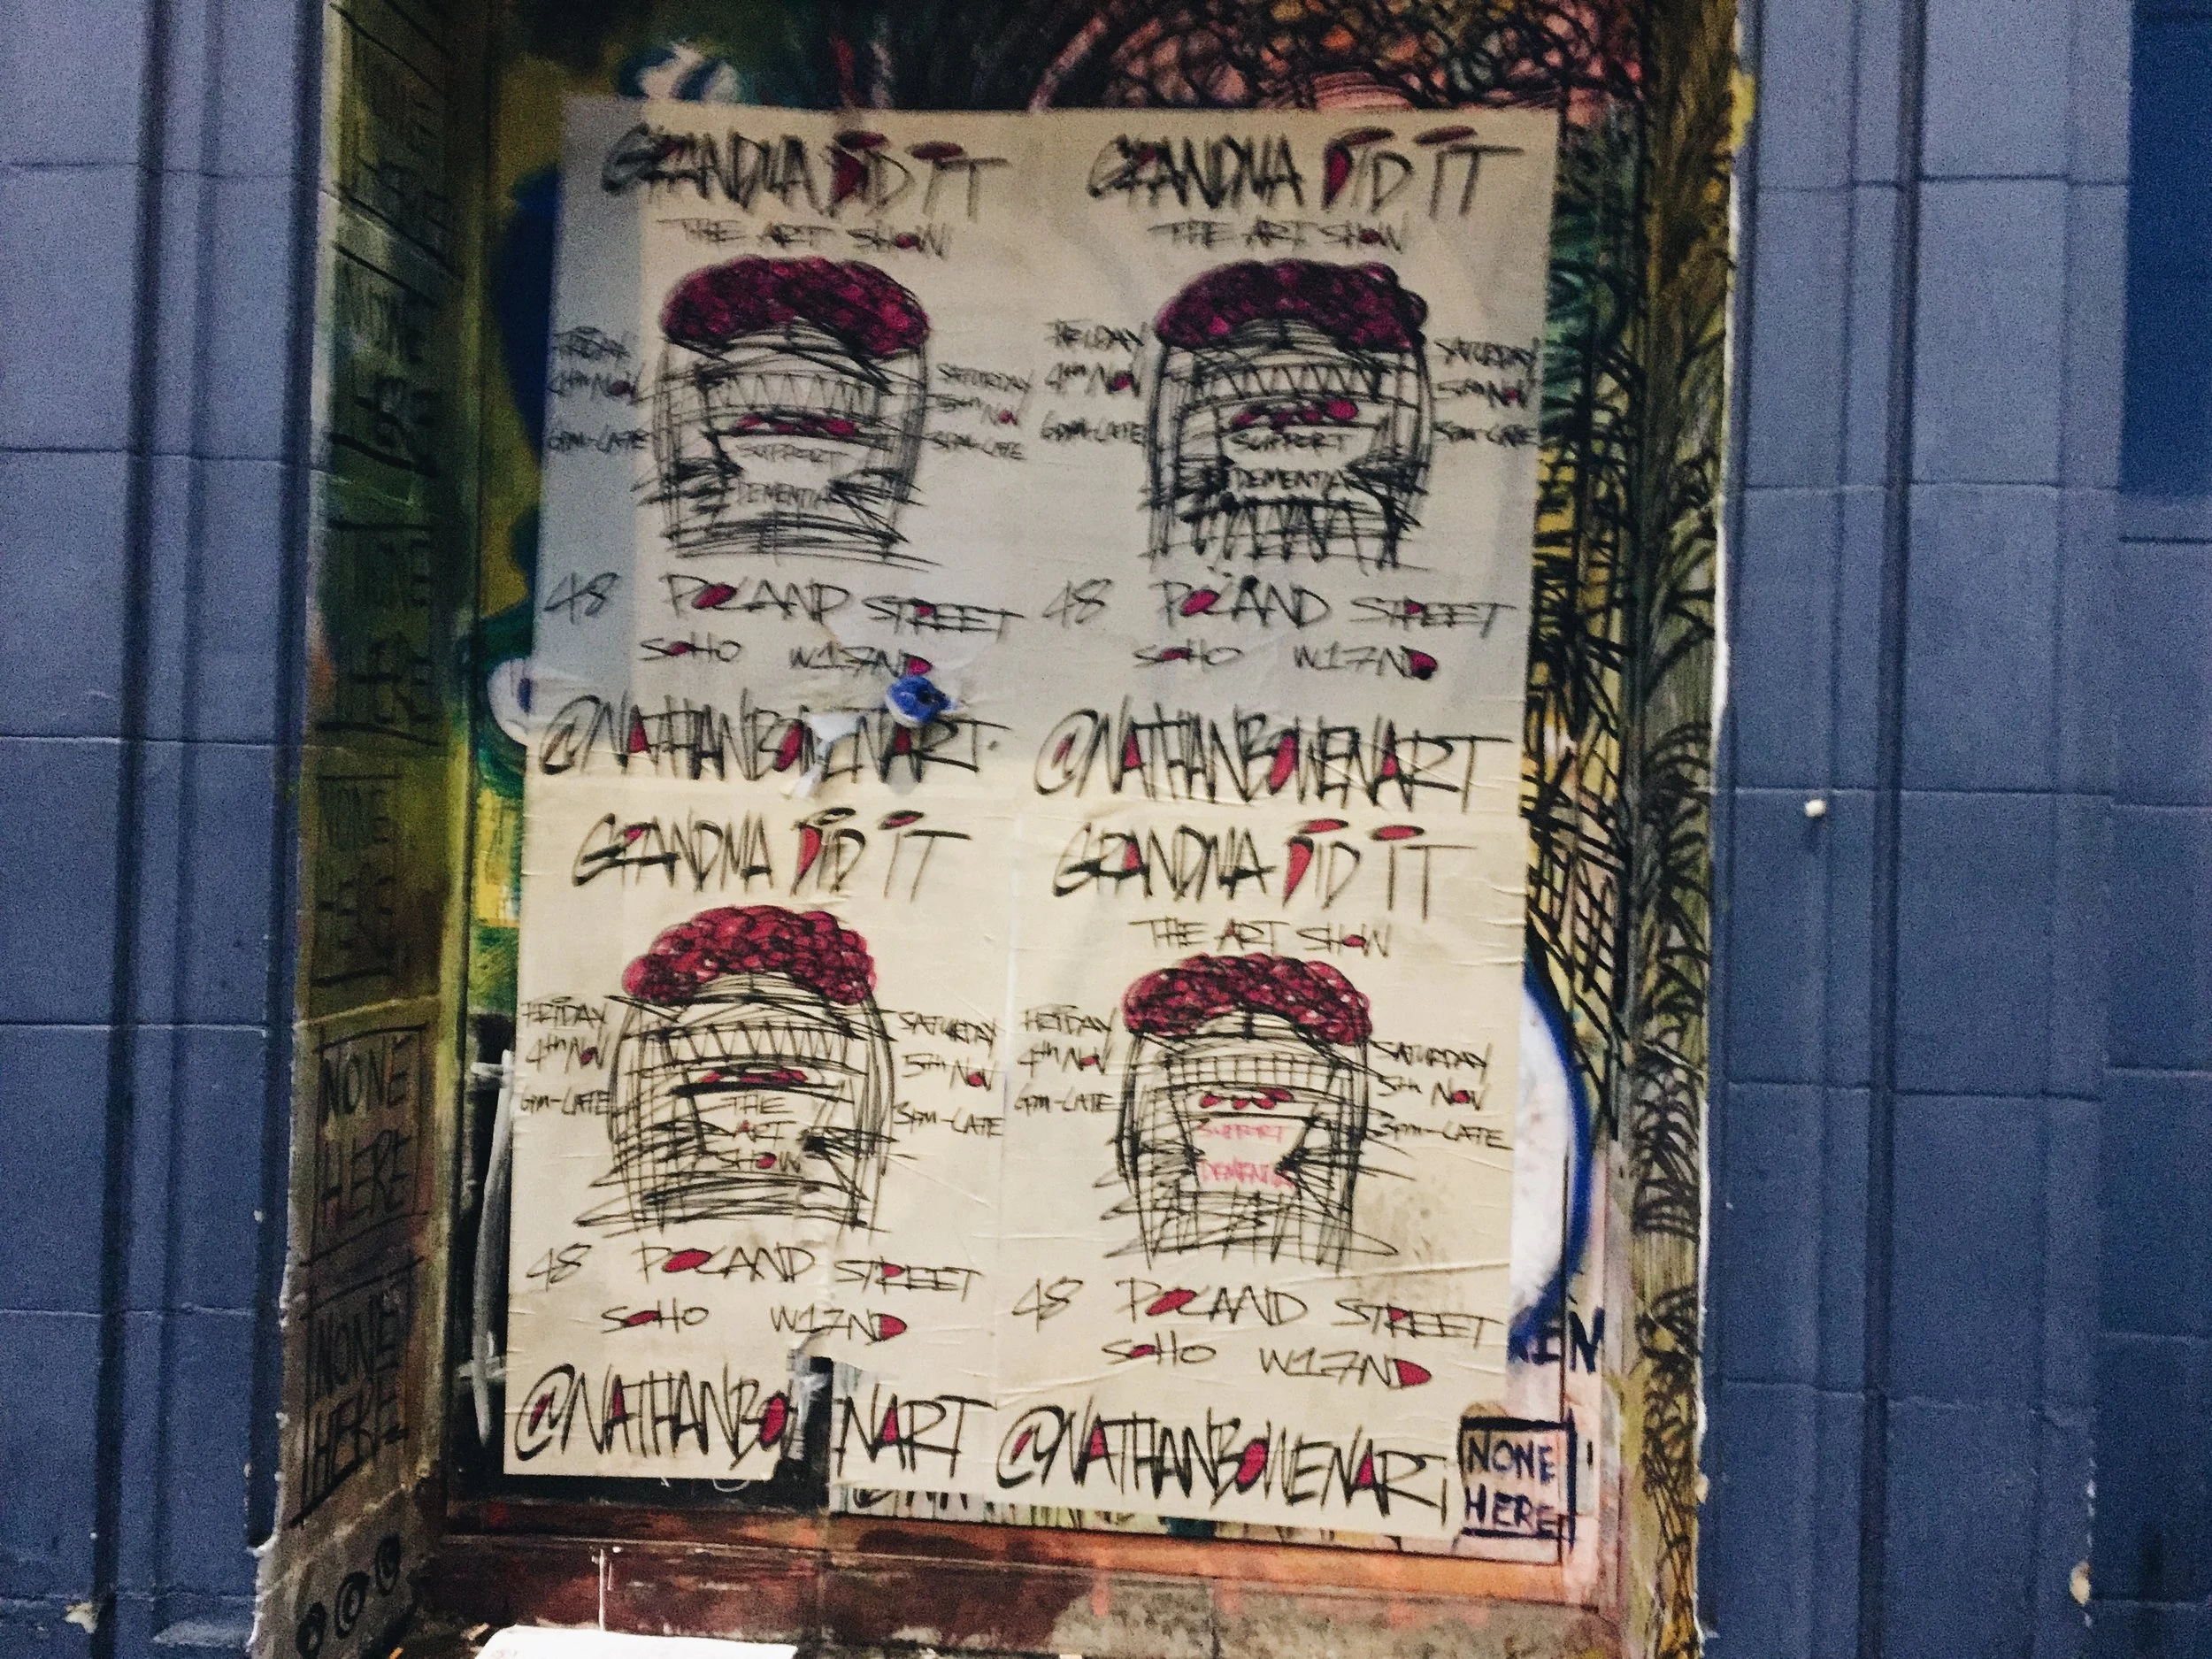 GRANDMA DID IT
THE ART SHOW
FRIDAY
4th NOV
6PM-LATE
SATURDAY
5th NOV
3PM-LATE
SUPPORT
DEMENTIA
48 POLAND STREET
SOHO W1 7ND
@NATHANBOWENART.
GRANDMA DID IT
THE ART SHOW
FRIDAY
4th NOV
6PM-LATE
SATURDAY
5th NOV
3PM-LATE
SUPPORT
DEMENTIA
48 POLAND STREET
SOHO W1 7ND
@NATHANBOWENART
GRANDMA DID IT
FRIDAY
4th NOV
6PM-LATE
SATURDAY
5th NOV
3PM-LATE
THE
ART
SHOW
48 POLAND STREET
SOHO W1 7ND
@NATHANBO NART
GRANDMA DID IT
THE ART SHOW
FRIDAY
4th NOV
6PM-LATE
SATURDAY
5th NOV
3PM-LATE
SUPPORT
DEMENTIA
48 POLAND STREET
SOHO W1 7ND
@NATHANBOWENART
NONE
HERE
NONE
HERE
NONE
HERE